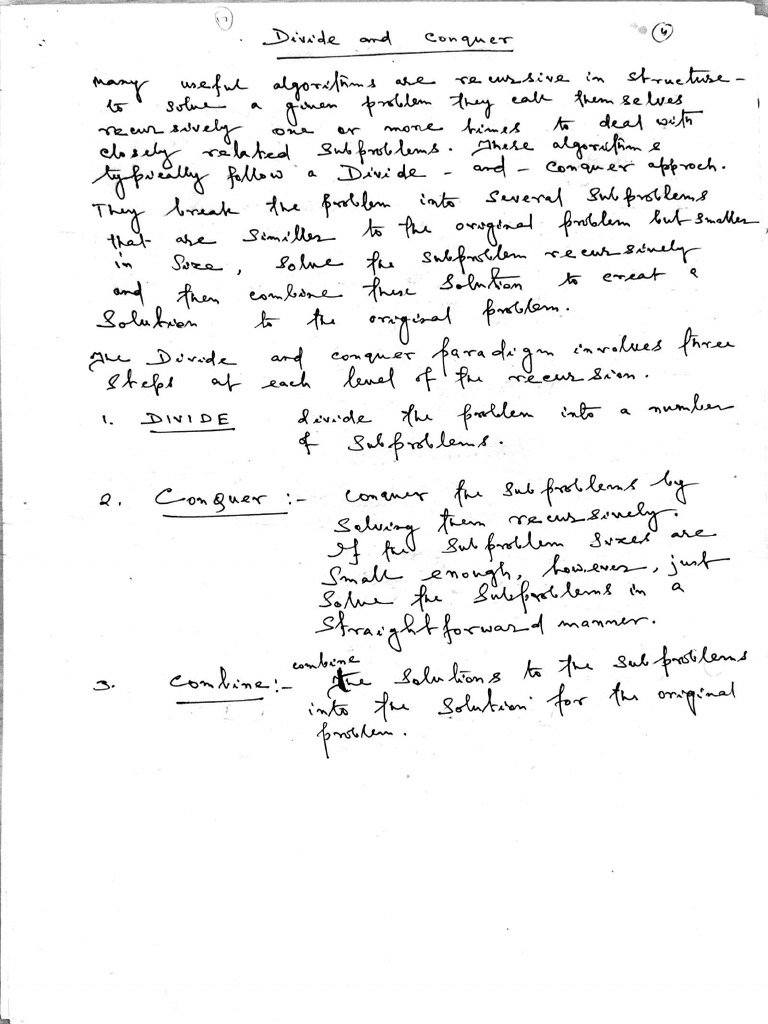 Divide and Conquer
4
many useful algorithms are recursive in structure -
to solve a given problem they call themselves
recursively one or more times to deal with
closely related subproblems. These algorithms
typically follow a Divide - and - Conquer approch.
They break the problem into several subproblems
that are similler to the original problem but smaller
in size, solve the subproblem recursively
and then combine these solution to creat a
solution to the original problem.
The Divide and conquer paradigm involves three
steps at each level of the recursion.
1. DIVIDE divide the problem into a number
of subproblems.
2. Conquer :- conquer the subproblems by
solving them recursively.
If the subproblem sizes are
small enough, however, just
solve the subproblems in a
straightforward manner.
3. Combine :- combine the solutions to the subproblems
into the solution for the original
problem.